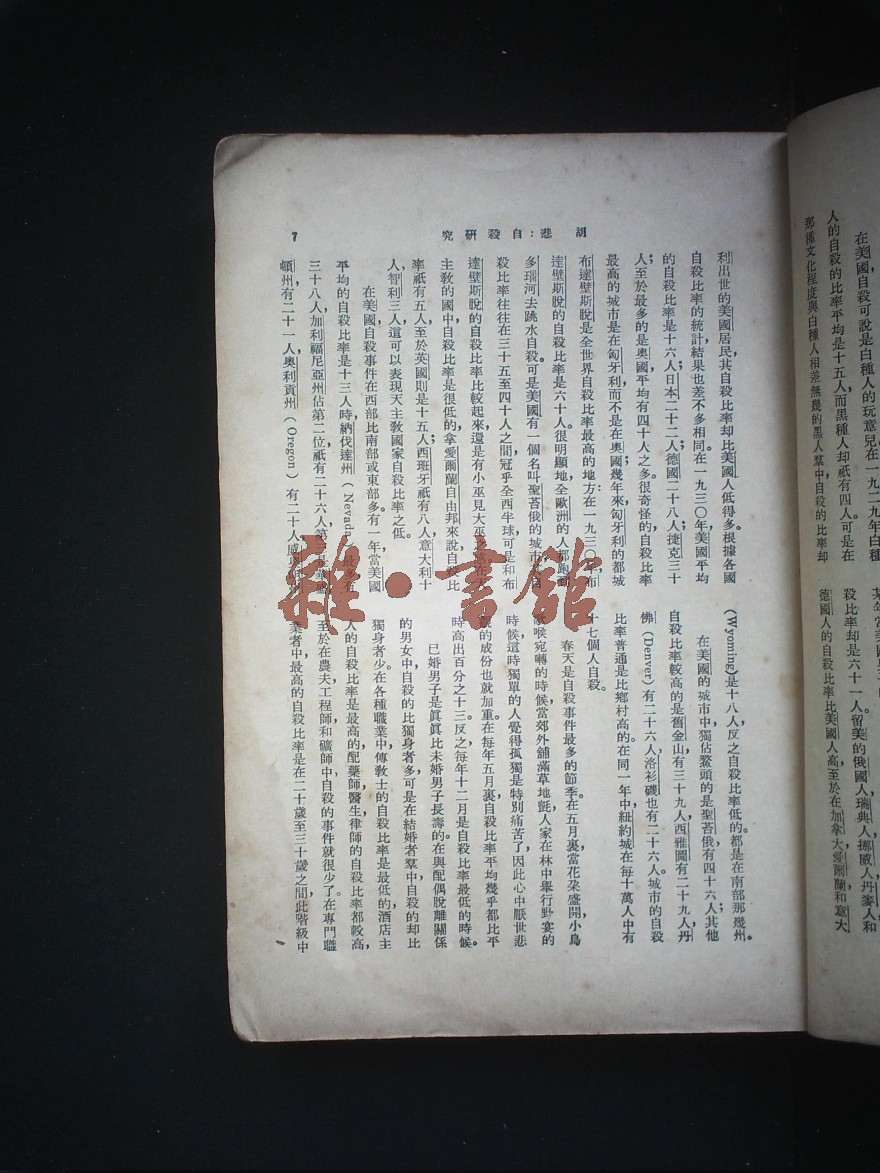 在美國，自殺可說是白種人的玩意兒在一九二九年白種
人的自殺的比率平均是十五人，而黑種人却祇有四人。可是在
那種文化程度與白種人相差無幾的黑人羣中自殺的比率却
殺比率却是六十一人留美的俄國人瑞典人挪威人丹麥人和
德國人的自殺比率比美國人高，至於在加拿大愛爾蘭和意大
胡悲：自殺研究
7
利出世的美國居民，其自殺比率却比美國人低得多。根據各國
自殺比率的統計，結果也差不多相同。在一九三〇年美國平均
的自殺比率是十六人；日本二十二人；德國二十八人；捷克三十
人；至於最多的是奧國，平均有四十人之多。很奇怪的，自殺比率
最高的城市是在匈牙利，而不是在奧國；幾年來，匈牙利的都城
布達壁斯脫是全世界自殺比率最高的地方；在一九三〇年布
達壁斯脫的自殺比率是六十人。很明顯地，全歐洲的人都跑到
多瑙河去跳水自殺。可是美國有一個名叫聖苔俄的城市其自
殺比率往往在三十五至四十人之間，冠乎全西半球可是和布
達壁斯脫的自殺比率比較起來，還是有小巫見大巫之感在天
主教的國中，自殺比率是很低的，拿愛爾蘭自由邦來說，自殺比
率祇有五人至於英國則是十五人；西班牙祇有八人意大利十
人，智利三人這可以表現天主教國家自殺比率之低。
在美國自殺事件在西部比南部或東部多。有一年，當美國
平均的自殺比率是十三人時納伐達州（Nevada）最多有
三十八人，加利福尼亞州佔第二位，祇有二十六人，第三是華盛
頓州，有二十一人，奧利貢州（Oregon）有二十人，
(Wyoming)是十八人，反之自殺比率低的都是在南部那幾州。
在美國的城市中，獨佔鰲頭的是聖苔俄，有四十六人；其他
自殺比率較高的是舊金山，有三十九人，西雅圖有二十九人，丹
佛(Denver)有二十六人，洛衫磯也有二十六人。城市的自殺
比率普通是比鄉村高的。在同一年中，紐約城在每十萬人中有
十七個人自殺。
春天是自殺事件最多的節季。在五月裏，當花朵盛開，小鳥
歌喉宛囀的時候，當郊外舖滿草地氈，人家在林中舉行野宴的
時候，這時獨單的人覺得孤獨是特別痛苦了，因此心中厭世悲
觀的成份也就加重。在每年五月裏，自殺比率平均幾乎都比平
時高出百分之十三。反之，每年十二月是自殺比率最低的時候。
已婚男子是眞眞比未婚男子長壽的。在與配偶脫離關係
的男女中，自殺的比獨身者多，可是在結婚者羣中，自殺的却比
獨身者少。在各種職業中，傳教士的自殺比率是最低的，酒店主
人的自殺比率是最高的，配藥師，醫生，律師的自殺比率都較高，
至於在農夫，工程師和礦師中自殺的事件就很少了。在專門職
業者中，最高的自殺比率是在二十歲至三十歲之間，此階級中
雜·書館